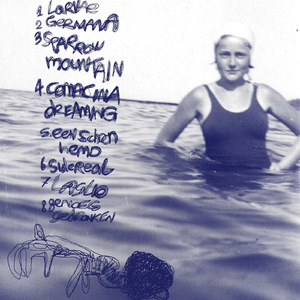 1 LARVAE
2 GERMANA
3 SPARROW
MOUNTAIN
4. COMACINA
DREAMING
5. een schon
hemd
6 SUREAL
7 LAGLIO
8 genoeg
gedronken